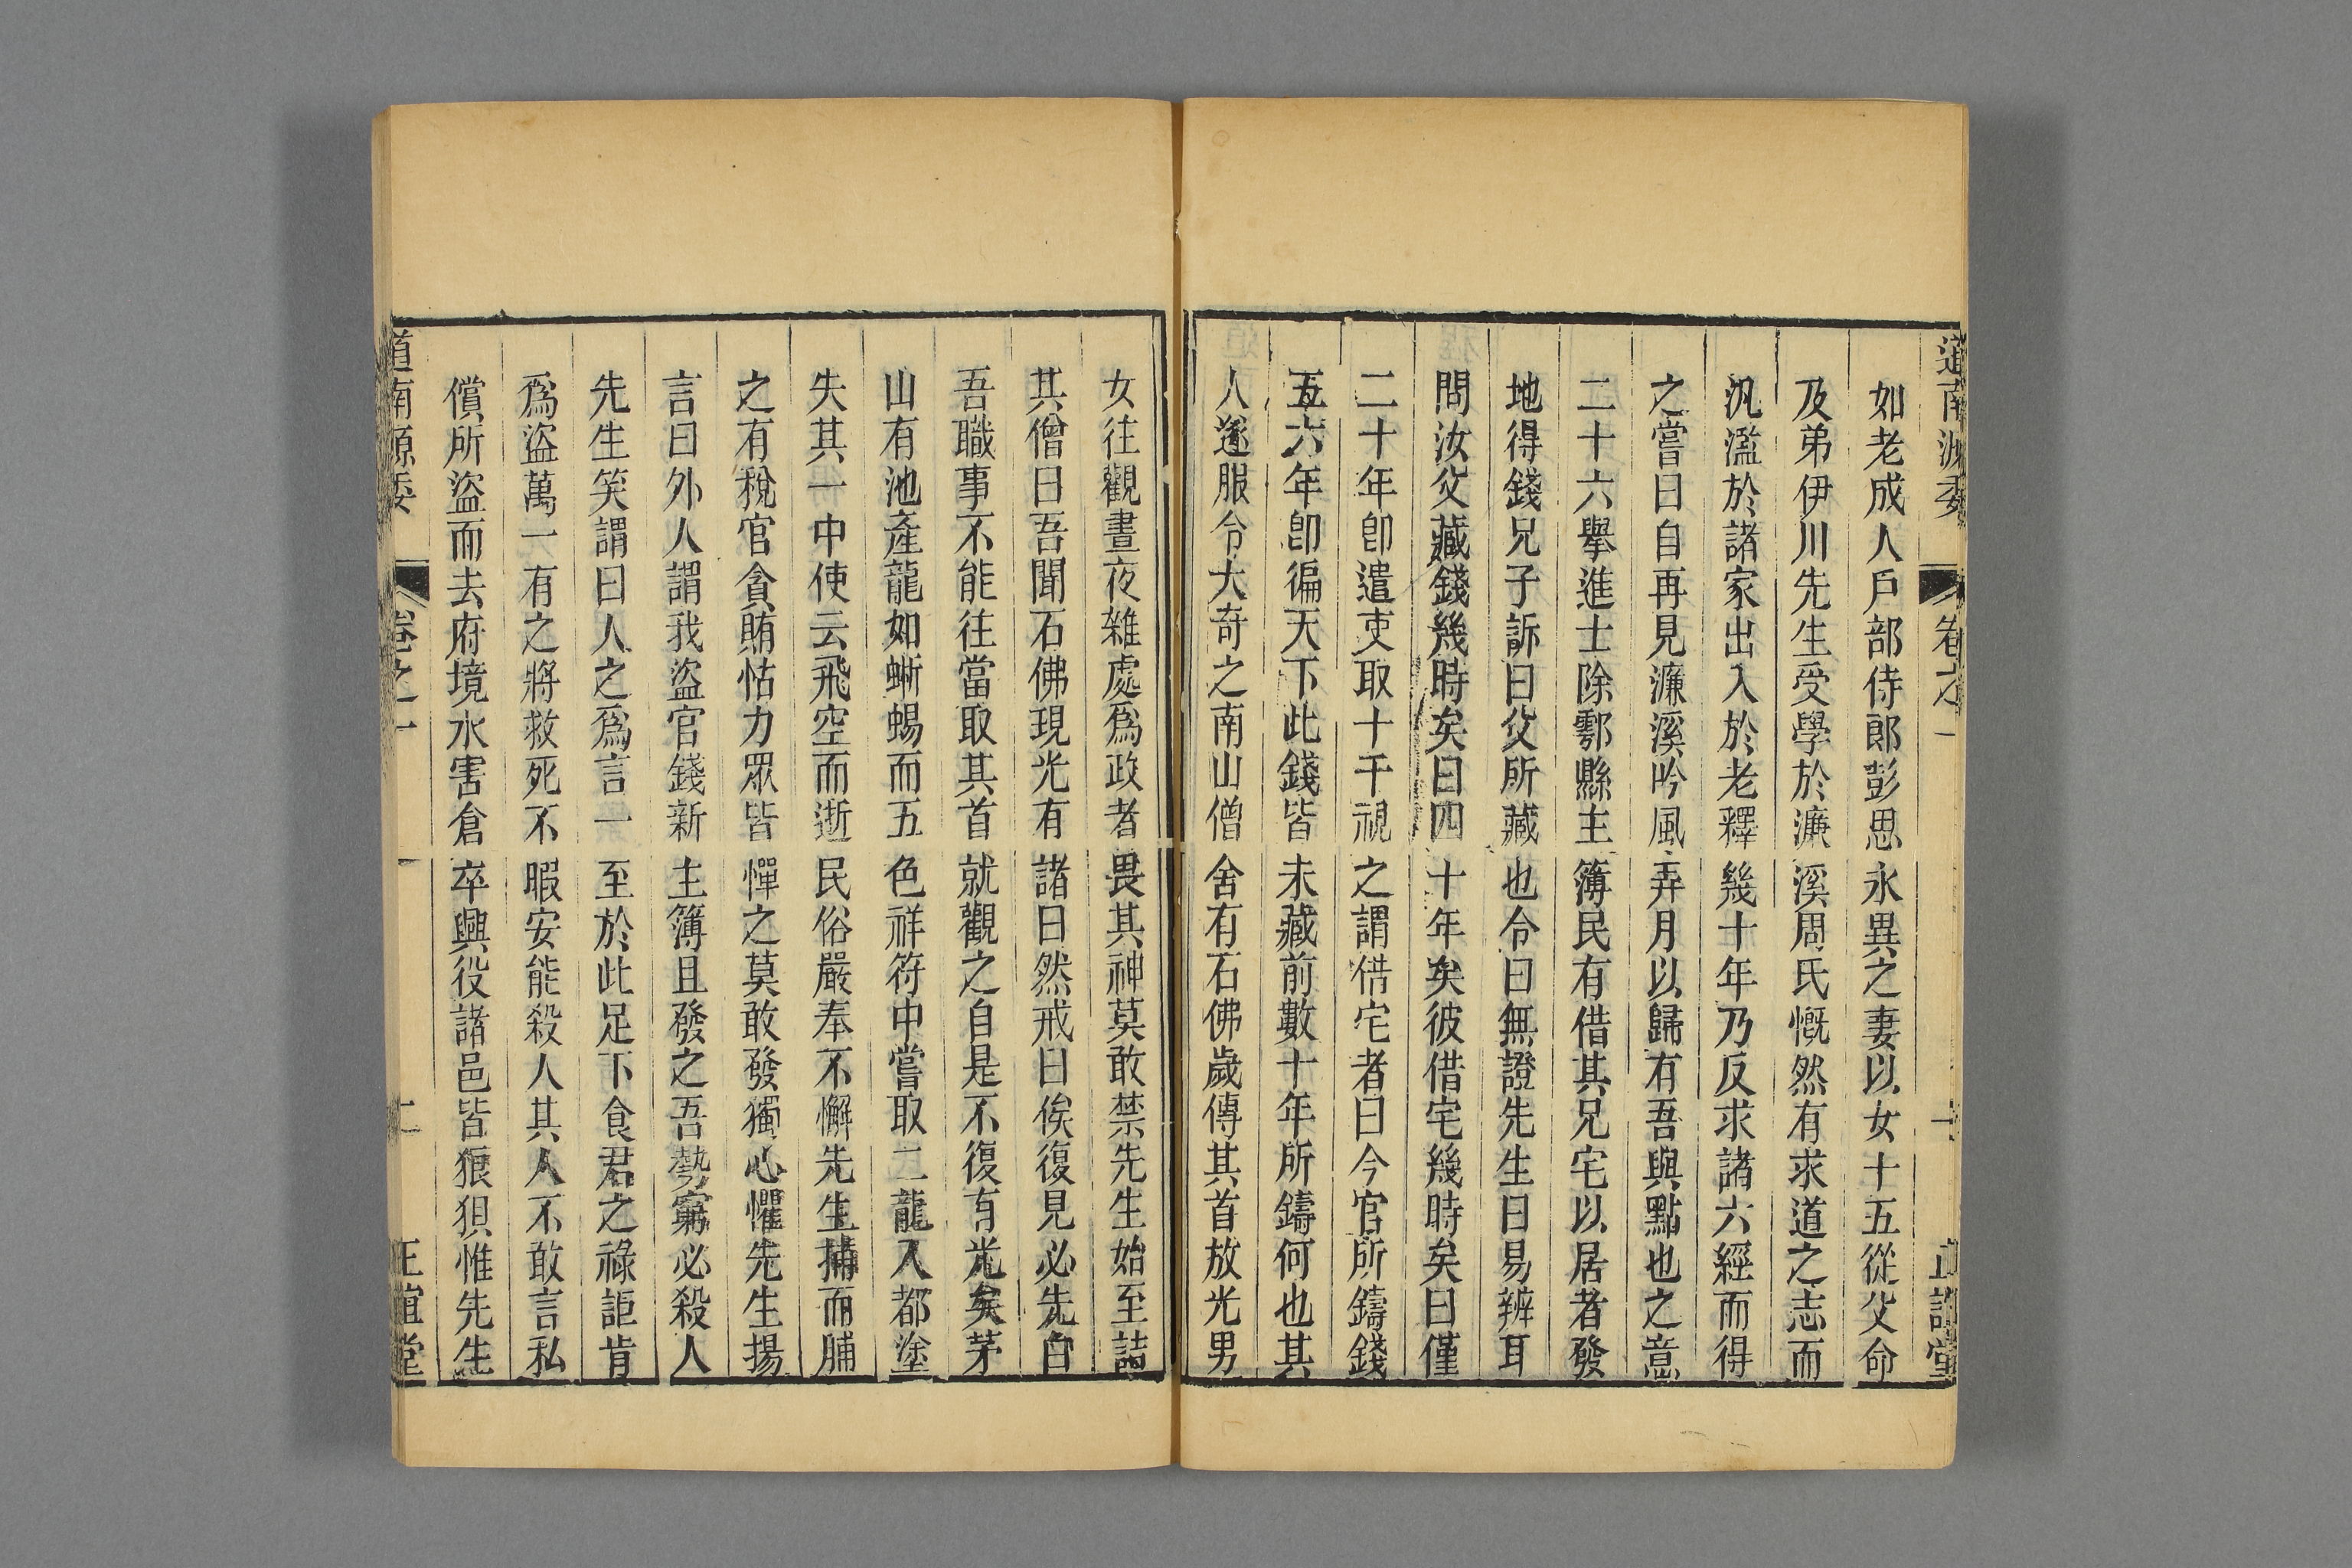 道南源委 卷之一 一 正誼堂
如老成人戶部侍郎彭思永異之妻以女十五從父命
及弟伊川先生受學於濂溪周氏慨然有求道之志而
汎濫於諸家出入於老釋幾十年乃反求諸六經而得
之嘗曰自再見濂溪吟風弄月以歸有吾與點也之意
二十六舉進士除鄠縣主簿民有借其兄宅以居者發
地得錢兄子訴曰父所藏也令曰無證先生曰易辨耳
問汝父藏錢幾時矣曰四十年矣彼借宅幾時矣曰僅
二十年卽遣吏取十千視之謂借宅者曰今官所鑄錢
五六年卽徧天下此錢皆未藏前數十年所鑄何也其
人遂服令大奇之南山僧舍有石佛歲傳其首放光男
女往觀晝夜雜處爲政者畏其神莫敢禁先生始至詰
其僧曰吾聞石佛現光有諸曰然戒曰俟復見必先白
吾職事不能往當取其首就觀之自是不復有光矣茅
山有池產龍如蜥蜴而五色祥符中嘗取二龍入都塗
失其一中使云飛空而逝民俗嚴奉不懈先生捕而脯
之有稅官貪賄怙力眾皆憚之莫敢發獨心懼先生揚
言曰外人謂我盜官錢新主簿且發之吾勢窮必殺人
先生笑謂曰人之爲言一至於此足下食君之祿詎肯
爲盜萬一有之將救死不暇安能殺人其人不敢言私
償所盜而去府境水害倉卒興役諸邑皆狼狽惟先生
道南源委 卷之一 二 正誼堂